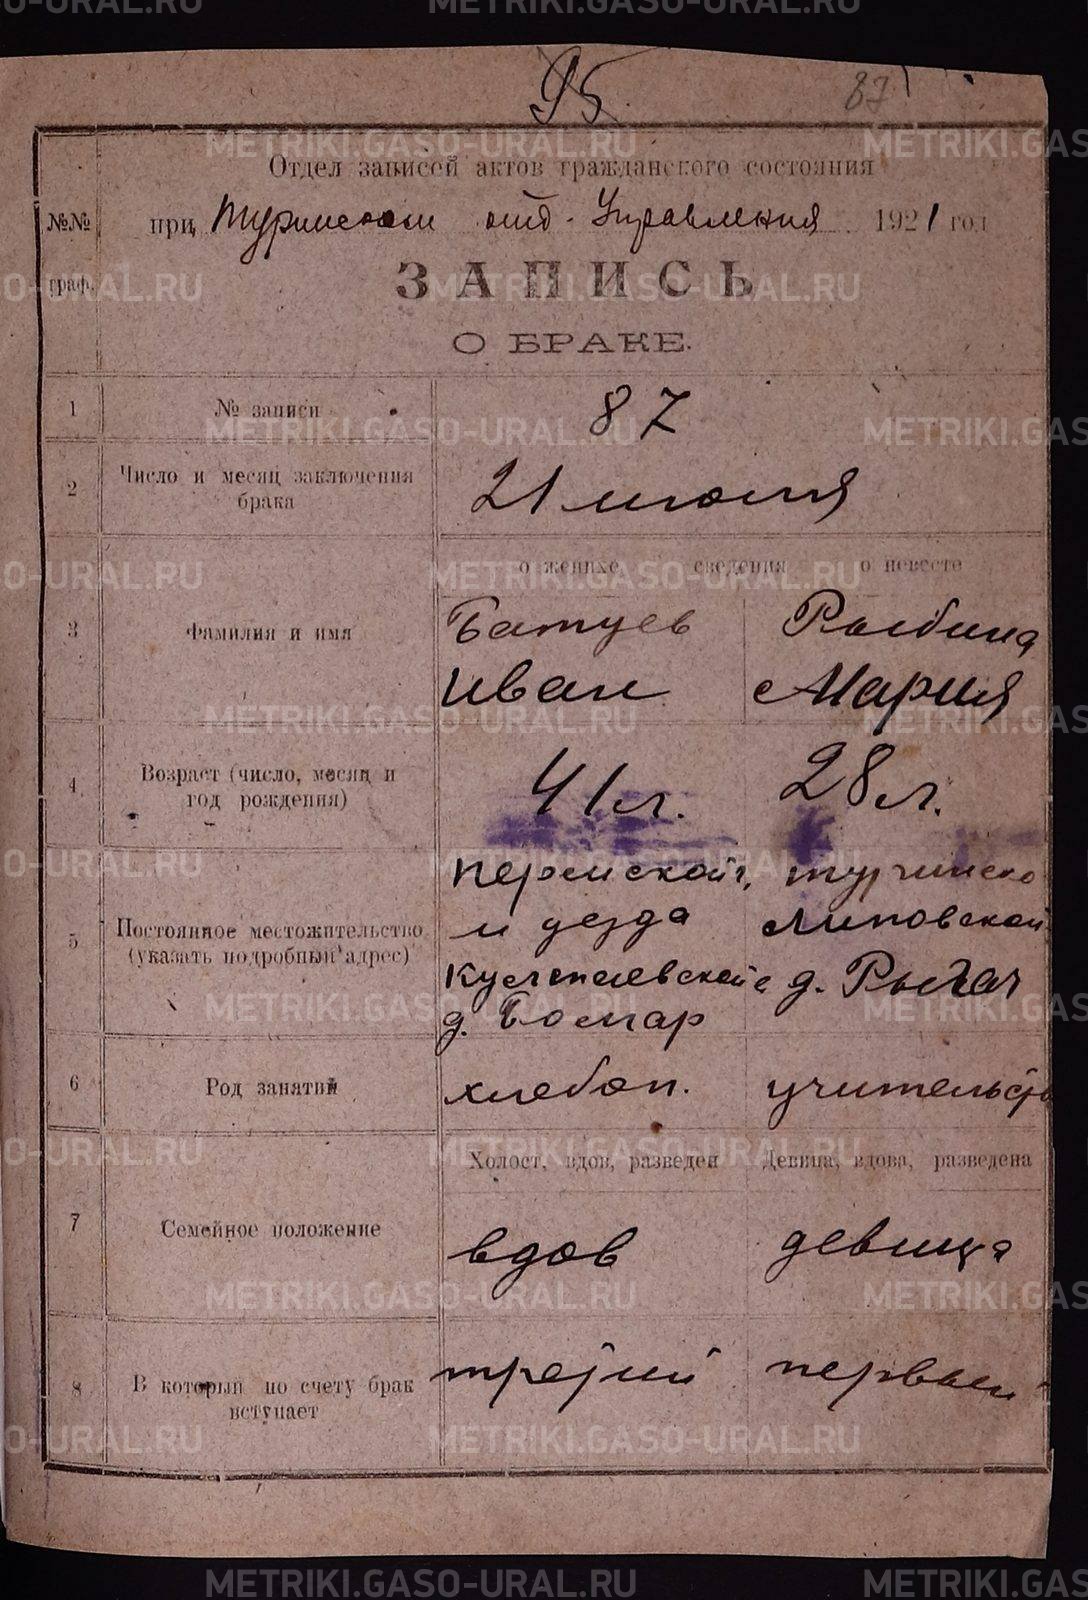 95
87
Отдел записей актов гражданского состояния
№№ граф.
при Туринском отд. Управления 1921 год
ЗАПИСЬ
О БРАКЕ.
1 № записи 87
2 Число и месяц заключения брака 21 июня
о женихе сведения о невесте
3 Фамилия и имя
Батуев Рыбина
Иван Мария
4 Возраст (число, месяц и год рождения)
41 л. 28 л.
5 Постоянное местожительство (указать подробный адрес)
Пермской г.
и уезда Липовской
д. д.
6 Род занятий хлебоп. учительст
Холост, вдов, разведен Девица, вдова, разведена
7 Семейное положение вдов девица
8 В который по счету брак вступает
третий первый
METRIKI.GASO-URAL.RU